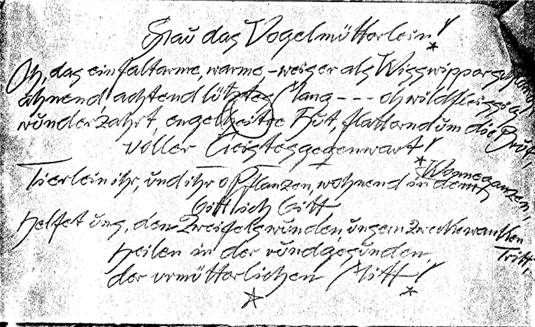 Schau das Vogelmütterlein!
Oh, das einfaltarme, warme, – weiser als
ahnend! achtend letztes --- oh wildfleissig
wunderzahrt engelbeitze Hut, flatternd um die Brut,
voller Geistesgegenwart!
Tierlein ihr, und ihr o Pflanzen, wohnend in dem Wonneganzen,
Gittlich Gitt
Helfet uns, den Zweifelswunden, unsern Zweckewanken Tritt,
heilen in der rundgesunden,
der urmütterlichen Mitt!